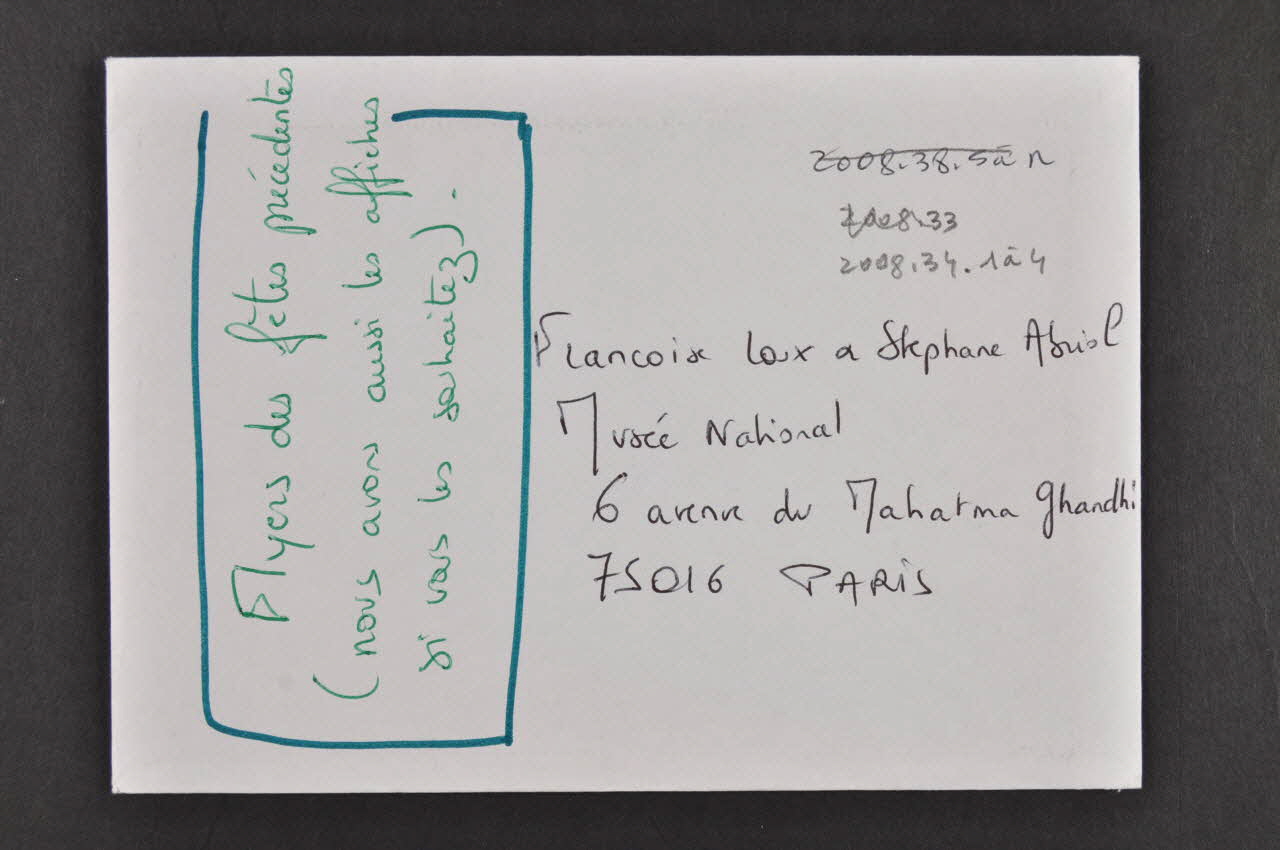 Flyers des fêtes précédentes
(nous avons aussi les affiches
si vous les souhaitez).
2008.38.5à n
2008.33
2008.34.1à4
Francoise Loux a Stephane Abriol
Musée National
6 avenue du Mahatma Ghandhi
75016 PARIS